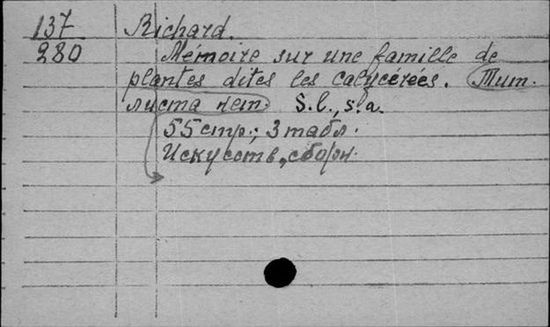 137 Richard.
280 Mémoire sur une famille de
plantes dites les calycérées. Тит.
листа нет S.l., s.a.
55 стр.; 3 табл.
Искусств. сборн.